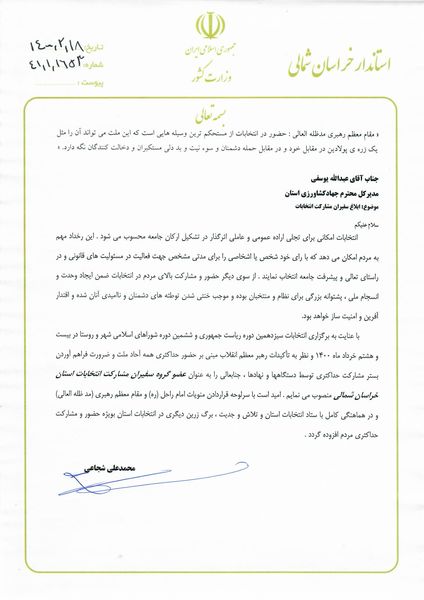 استاندار خراسان شمالی
جمهوری اسلامی ایران
وزارت کشور
تاریخ: ۱۴۰۰,۲,۱۸
شماره: ۴۱,۱,۱۶۵۳
پیوست:
بسمه تعالی
« مقام معظم رهبری مدظله العالی : حضور در انتخابات از مستحکم ترین وسیله هایی است که این ملت می تواند آن را مثل
یک زره ی پولادین در مقابل خود و در مقابل حمله دشمنان و سوء نیت و بد دلی مستکبران و دخالت کنندگان نگه دارد. »
جناب آقای عبدالله یوسفی
مدیرکل محترم جهادکشاورزی استان
موضوع: ابلاغ سفیران مشارکت انتخابات
سلام علیکم
انتخابات امکانی برای تجلی اراده عمومی و عاملی اثرگذار در تشکیل ارکان جامعه محسوب می شود . این رخداد مهم
به مردم امکان می دهد که با رای خود شخص یا اشخاصی را برای مدتی مشخص جهت فعالیت در مسئولیت های قانونی و در
راستای تعالی و پیشرفت جامعه انتخاب نمایند . از سوی دیگر حضور و مشارکت بالای مردم در انتخابات ضمن ایجاد وحدت و
انسجام ملی ، پشتوانه بزرگی برای نظام و منتخبان بوده و موجب خنثی شدن توطئه های دشمنان و ناامیدی آنان شده و اقتدار
آفرین و امنیت ساز خواهد بود.
با عنایت به برگزاری انتخابات سیزدهمین دوره ریاست جمهوری و ششمین دوره شوراهای اسلامی شهر و روستا در بیست
و هشتم خرداد ماه ۱۴۰۰ و نظر به تأکیدات رهبر معظم انقلاب مبنی بر حضور حداکثری همه آحاد ملت و ضرورت فراهم آوردن
بستر مشارکت حداکثری توسط دستگاهها و نهادها ، جنابعالی را به عنوان عضو گروه سفیران مشارکت انتخابات استان
خراسان شمالی منصوب می نمایم . امید است با سرلوحه قراردادن منویات امام راحل (ره) و مقام معظم رهبری (مد ظله العالی)
و در هماهنگی کامل با ستاد انتخابات استان و تلاش و جدیت ، برگ زرین دیگری در انتخابات استان بویژه حضور و مشارکت
حداکثری مردم افزوده گردد .
محمدعلی شجاعی